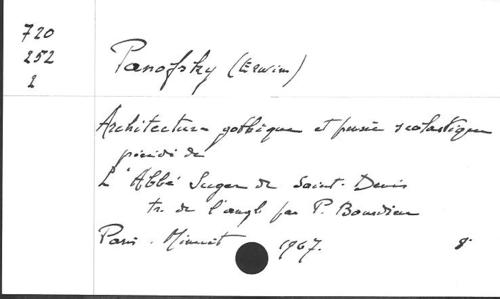 720
252
2
Panofsky (Erwin)
Architecture gothique et pensée scolastique
précédé de
L'Abbé Suger de Saint-Denis
tr. de l'angl. par P. Bourdieu
Paris. Minuit 1967. 8°